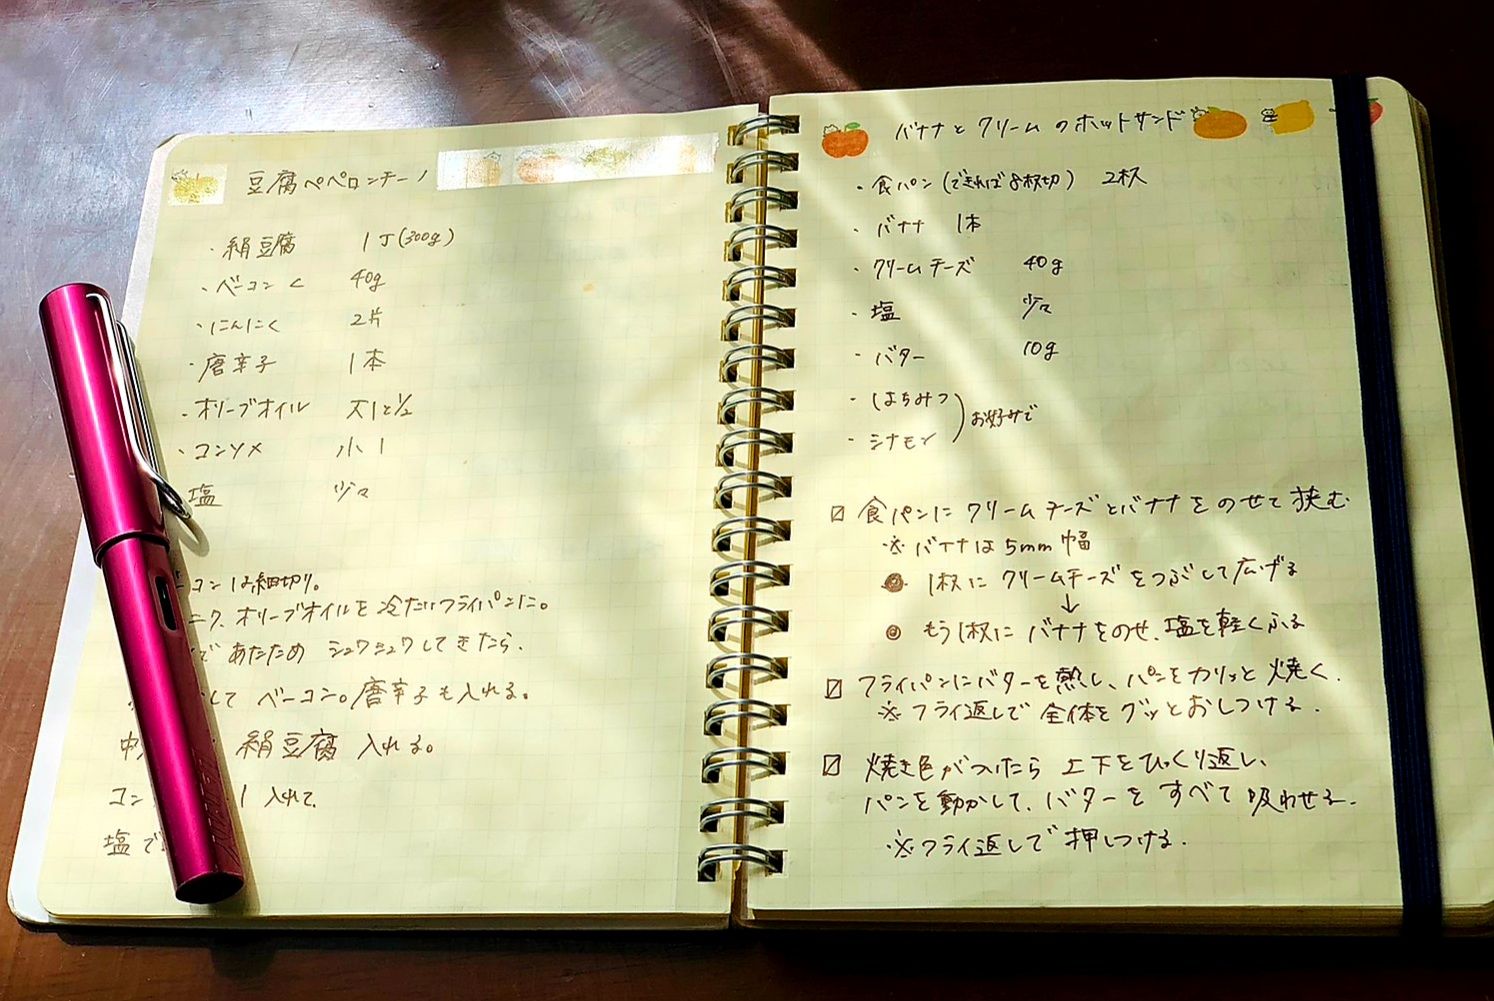 豆腐ペペロンチーノ
・絹豆腐 1丁(300g)
・ベーコン 40g
・にんにく 2片
・唐辛子 1本
・オリーブオイル 大1と1/2
・コンソメ 小1
塩 少々
コンは細切り。
ニク、オリーブオイルを冷たいフライパンに。
であたため シュワシュワしてきたら、
して ベーコン。唐辛子も入れる。
絹豆腐 入れる。
コン 1 入れて、
塩で
バナナとクリームのホットサンド
・食パン(できれば8枚切) 2枚
・バナナ 1本
・クリームチーズ 40g
・塩 少々
・バター 10g
・はちみつ
お好みで
・シナモン
食パンにクリームチーズとバナナをのせて挟む
※バナナは5mm幅
1枚にクリームチーズをつぶして広げる
↓
もう1枚にバナナをのせ、塩を軽くふる
フライパンにバターを熱し、パンをカリッと焼く。
※フライ返しで全体をグッとおしつける。
焼き色がついたら上下をひっくり返し、
パンを動かして、バターをすべて吸わせる。
※フライ返しで押しつける。